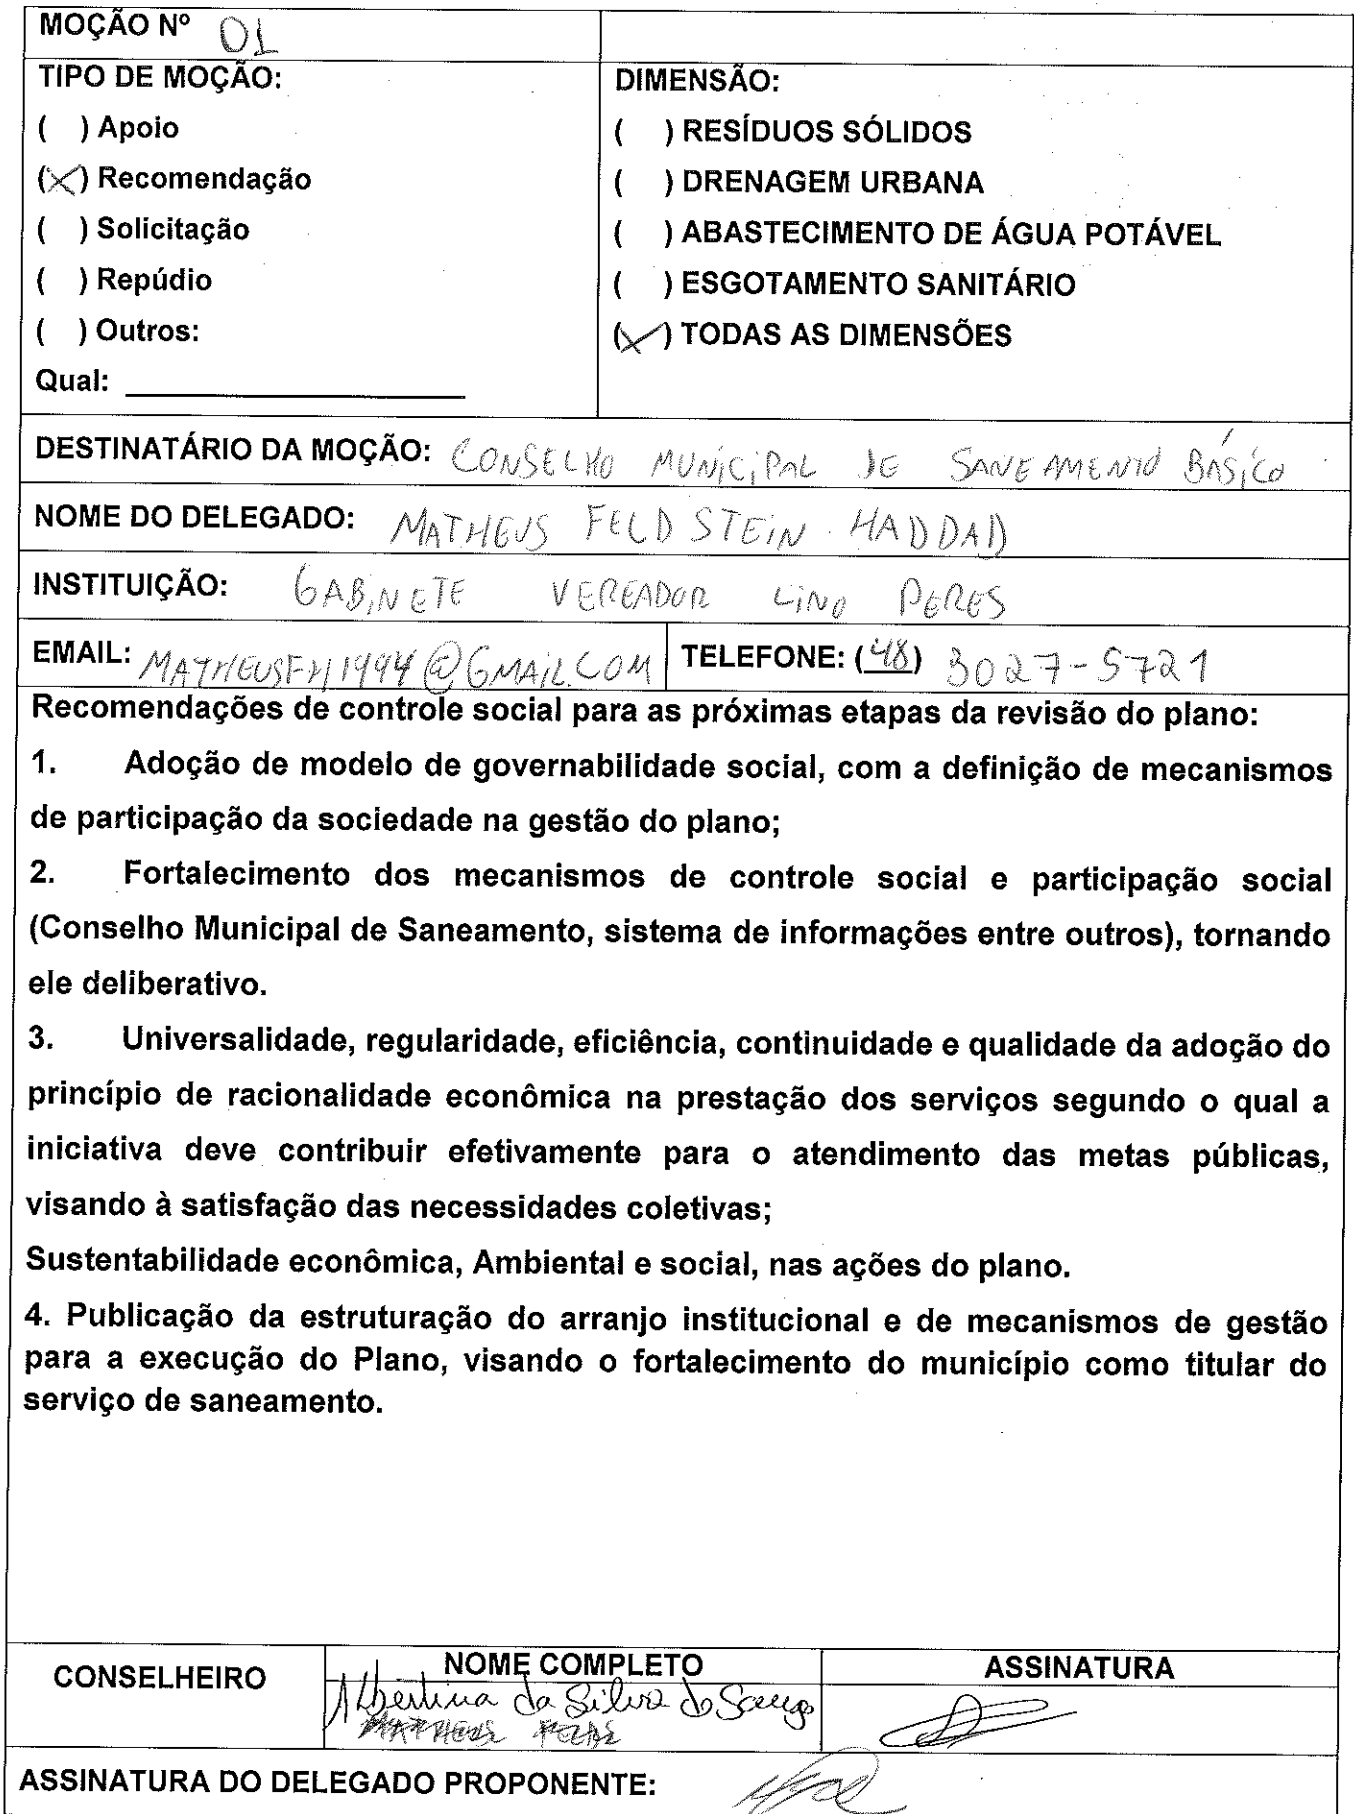 MOÇÃO Nº 01
TIPO DE MOÇÃO:
( ) Apoio
(X) Recomendação
( ) Solicitação
( ) Repúdio
( ) Outros:
Qual: ____________________
DIMENSÃO:
( ) RESÍDUOS SÓLIDOS
( ) DRENAGEM URBANA
( ) ABASTECIMENTO DE ÁGUA POTÁVEL
( ) ESGOTAMENTO SANITÁRIO
(X) TODAS AS DIMENSÕES
DESTINATÁRIO DA MOÇÃO: CONSELHO MUNICIPAL DE SANEAMENTO BÁSICO
NOME DO DELEGADO: MATHEUS FELDSTEIN HADDAD
INSTITUIÇÃO: GABINETE VEREADOR LINO PERES
EMAIL: MATHEUSFH1994@GMAIL.COM TELEFONE: (48) 3027-5721
Recomendações de controle social para as próximas etapas da revisão do plano:
1. Adoção de modelo de governabilidade social, com a definição de mecanismos
de participação da sociedade na gestão do plano;
2. Fortalecimento dos mecanismos de controle social e participação social
(Conselho Municipal de Saneamento, sistema de informações entre outros), tornando
ele deliberativo.
3. Universalidade, regularidade, eficiência, continuidade e qualidade da adoção do
princípio de racionalidade econômica na prestação dos serviços segundo o qual a
iniciativa deve contribuir efetivamente para o atendimento das metas públicas,
visando à satisfação das necessidades coletivas;
Sustentabilidade econômica, Ambiental e social, nas ações do plano.
4. Publicação da estruturação do arranjo institucional e de mecanismos de gestão
para a execução do Plano, visando o fortalecimento do município como titular do
serviço de saneamento.
CONSELHEIRO
NOME COMPLETO
Albertina da Silva de Souza
ASSINATURA
ASSINATURA DO DELEGADO PROPONENTE: